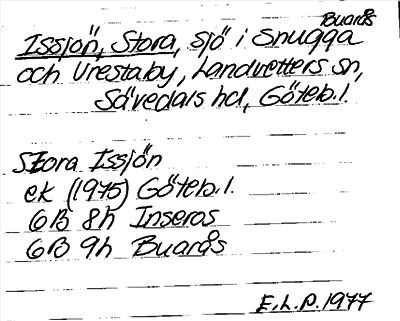 Buarås
Issjön, Stora, sjö i Snugga
och Urestaby, Landvetters sn,
Sävedals hd, Göteb.l.
Stora Issjön
ek (1975) Göteb.l.
6B 8h Inseros
6B 9h Buarås
E.L.P. 1977